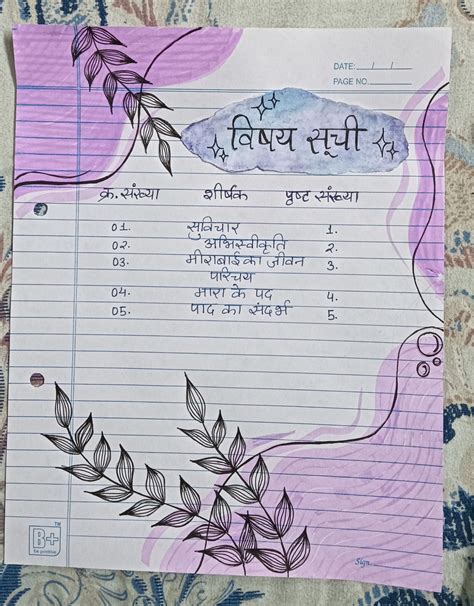 DATE: __/__/__
PAGE NO.
विषय सूची
क्र. संख्या शीर्षक पृष्ट संख्या
01. सुविचार 1.
02. अभिस्वीकृति 2.
03. मीराबाई का जीवन 3.
परिचय
04. मारा के पद 4.
05. पाद का संदर्भ 5.
B+ TM
be positive
Sign